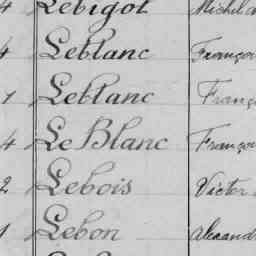 4 Lebigot Michel
4 Leblanc Franço
1 Leblanc Franç
4 Le Blanc Franço
2 Lebois Victor
1 Lebon Alexand